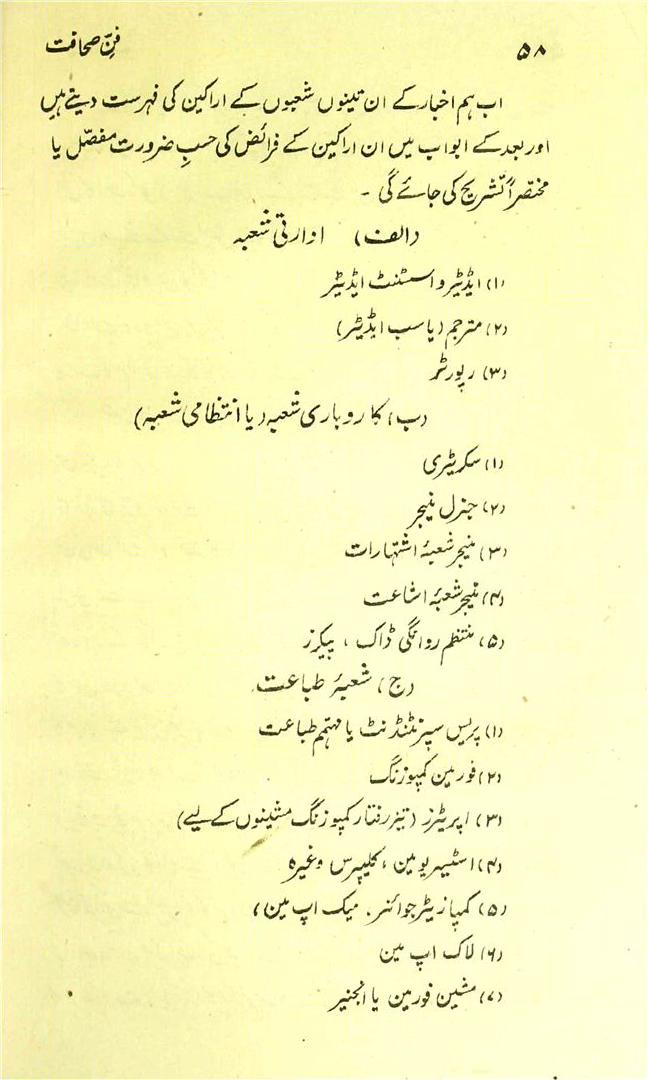 ۵۸
فنِّ صحافت
اب ہم اخبار کے ان تینوں شعبوں کے اراکین کی فہرست دیتے ہیں
اور بعد کے ابواب میں ان اراکین کے فرائض کی حسبِ ضرورت مفصّل یا
مختصراً تشریح کی جائے گی ۔
(الف) ادارتی شعبہ
(۱) ایڈیٹر و اسسٹنٹ ایڈیٹر
(۲) مترجم (یا سب ایڈیٹر)
(۳) رپورٹر
(ب) کاروباری شعبہ (یا انتظامی شعبہ)
(۱) سکریٹری
(۲) جنرل منیجر
(۳) منیجر شعبۂ اشتہارات
(۴) منیجر شعبۂ اشاعت
(۵) منتظم روانگی ڈاک ، پیکرز
(ج) شعبۂ طباعت
(۱) پریس سپرنٹنڈنٹ یا مہتمم طباعت
(۲) فورمین کمپوزنگ
(۳) اپریٹرز (تیز رفتار کمپوزنگ مشینوں کے لیے)
(۴) اسٹیریو مین ، کلیپرس وغیرہ
(۵) کمپازیٹر جوائنر . میک اپ مین ،
(۶) لاک اپ مین
(۷) مشین فورمین یا انجنیر